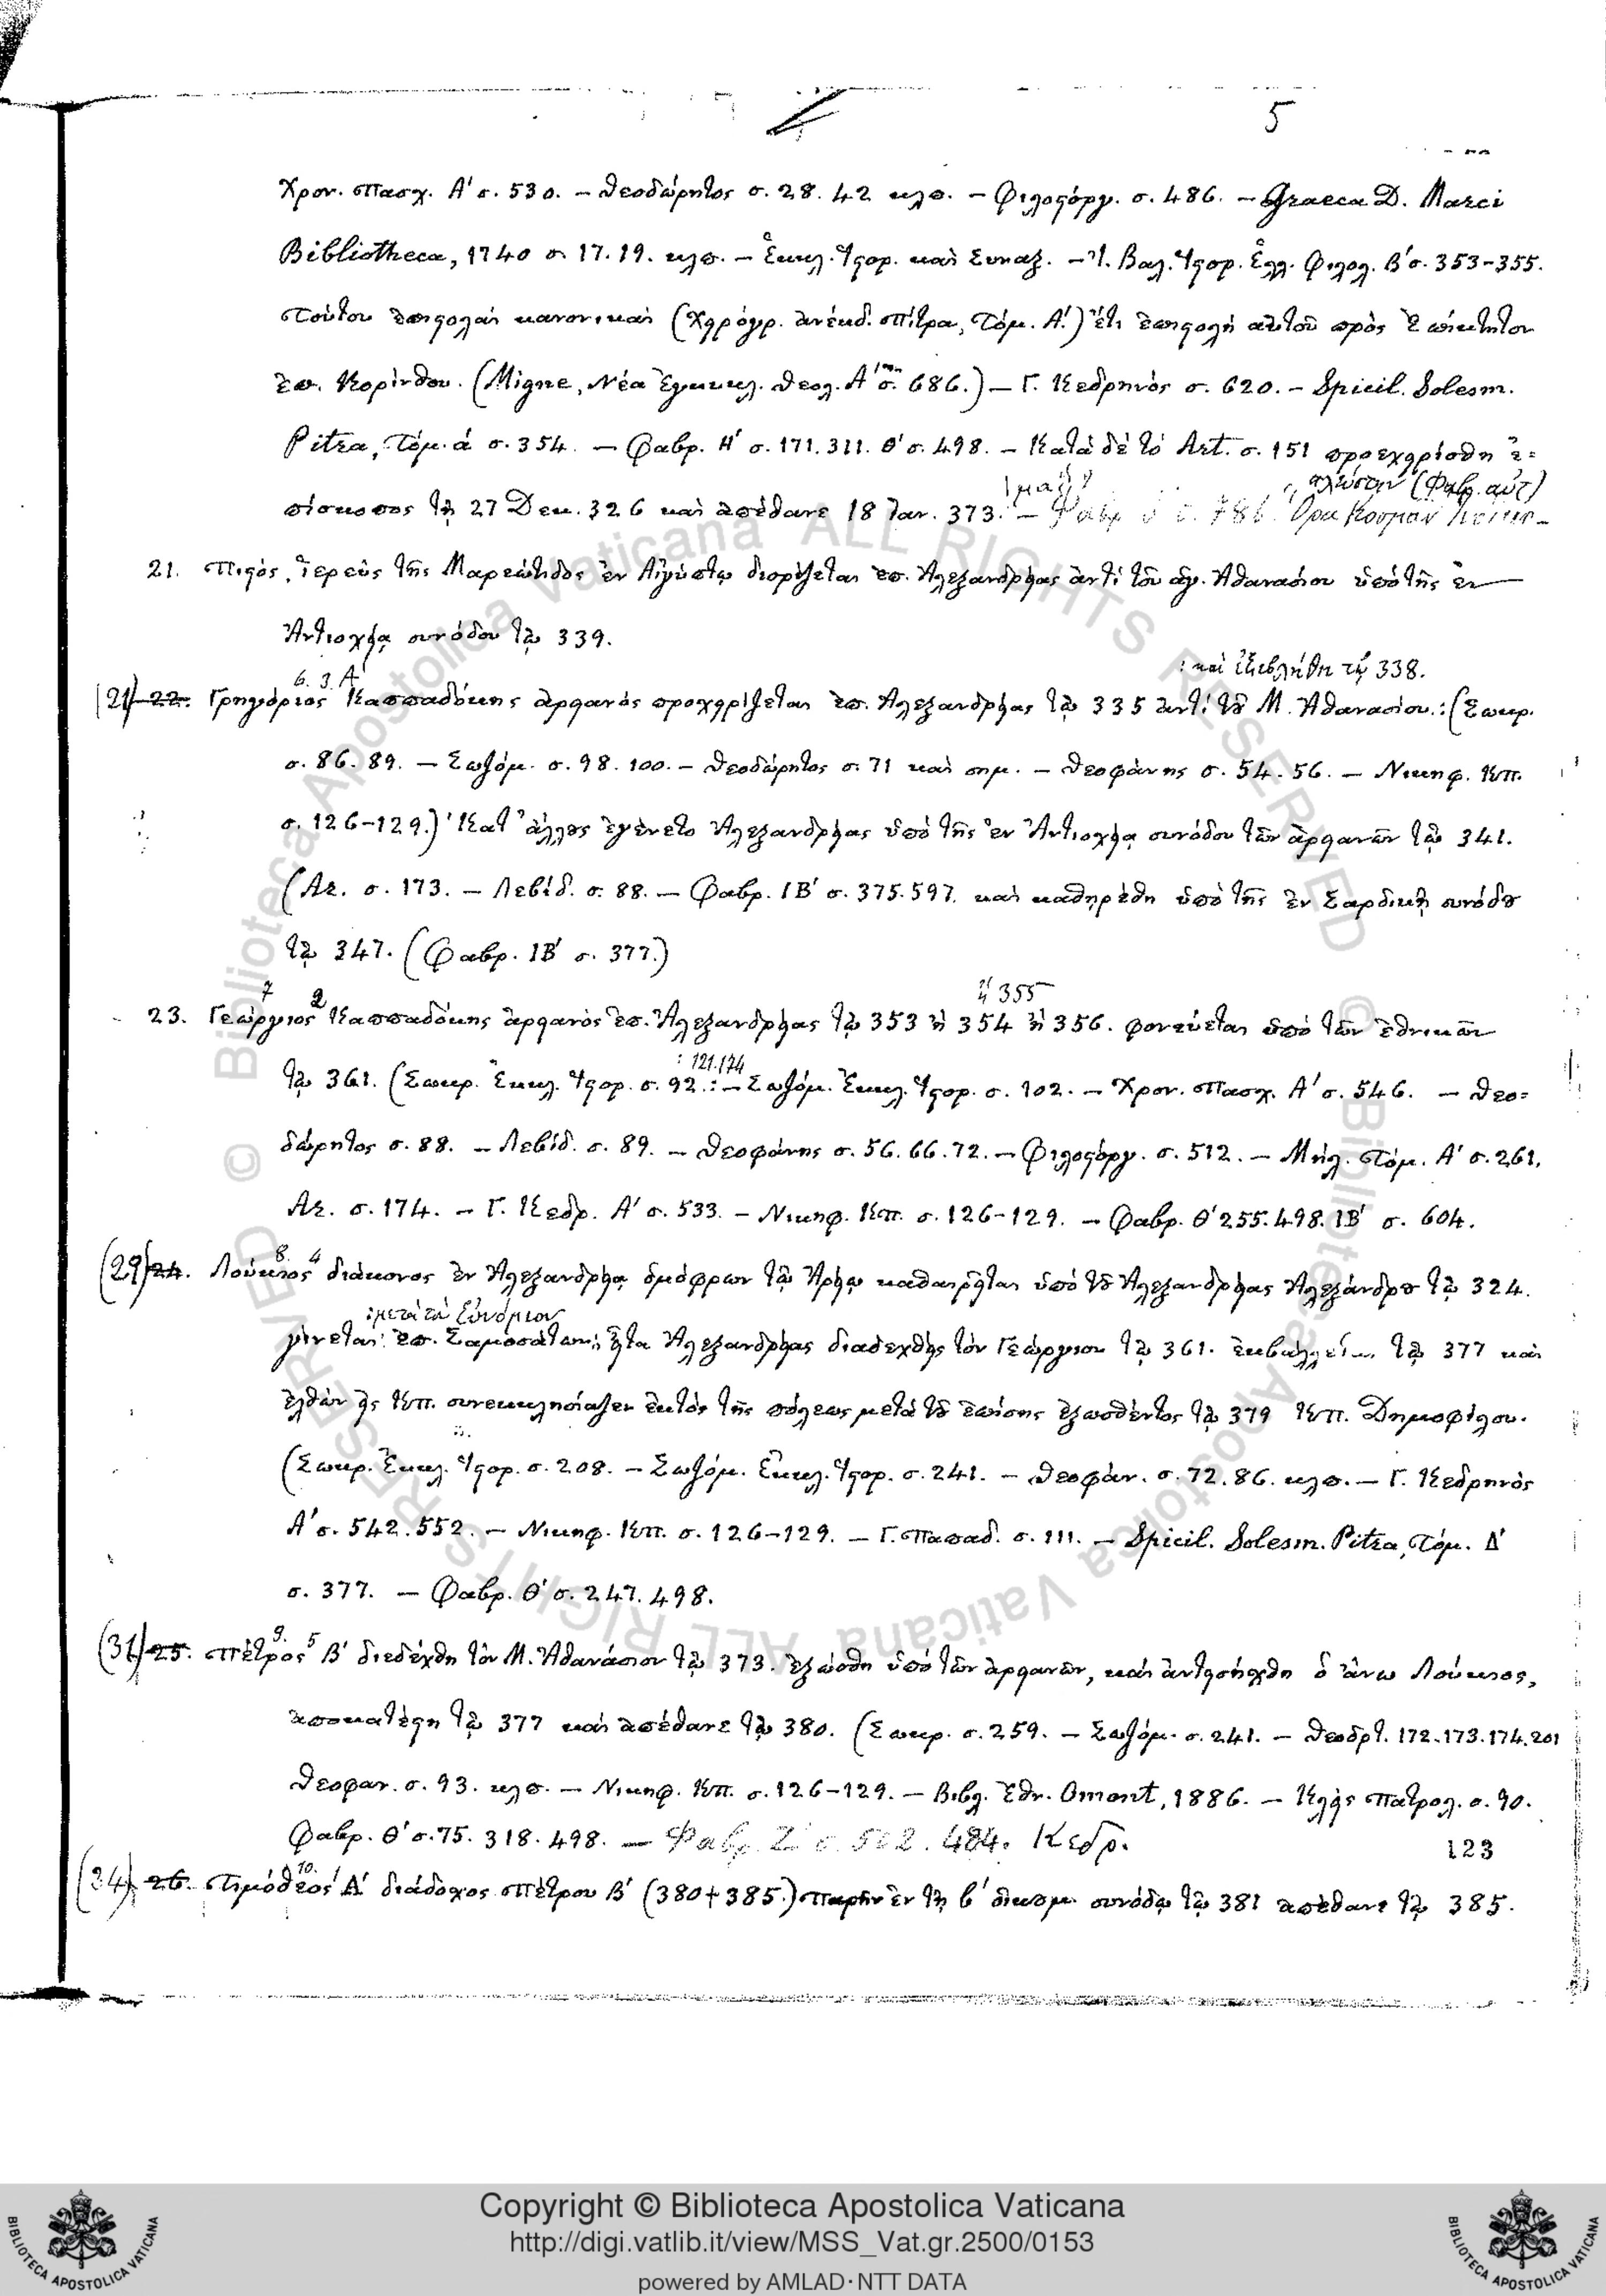 5
Χρον. Πασχ. Α' σ. 530. – Θεοδώρητος σ. 28. 42 κλπ. – Φιλοστόργ. σ. 486. – Graeca D. Marci
Bibliotheca, 1740 σ. 17. 19. κλπ. – Ἐκκλ. Ἱστορ. καὶ Συναξ. – Ἰ. Βαλ. Ἱστορ. Ἑλλ. Φιλολ. Β' σ. 353–355.
Τούτου ἐπιστολαὶ κανονικαὶ (Χειρόγρ. ἀνέκδ. Πίτρα, Τόμ. Α'.) ἔτι ἐπιστολὴ αὐτοῦ πρὸς Ἐπίκτητον
ἐπ. Κορίνθου. (Migne, Νέα Ἐγκυκλ. Θεολ. Α' σ. 686.) – Γ. Κεδρηνὸς σ. 620. – Spicil. Solesm.
Pitra, Τόμ. ά σ. 354. – Φαβρ. Η' σ. 171. 311. Θ' σ. 498. – Κατὰ δὲ τὸ Art. σ. 151 προεχειρίσθη ἐ=
(Φαβρ. αὐτ)
πίσκοπος τῇ 27 Δεκ. 326 καὶ ἀπέθανε 18 Ἰαν. 373. – Φαβρ σ. 786. Ὅρα Κοσμᾶν
21. Πιστὸς, ἱερεὺς τῆς Μαρεώτιδος ἐν Αἰγύπτῳ διορίζεται ἐπ. Ἀλεξανδρείας ἀντὶ τοῦ ἁγ. Ἀθανασίου ὑπὸ τῆς ἐν
Ἀντιοχείᾳ συνόδου τῷ 339.
: καὶ ἐξεβλήθη τῷ 338.
6. 3. Α'
(21) 22. Γρηγόριος Καππαδόκης ἀρειανὸς προχειρίζεται ἐπ. Ἀλεξανδρείας τῷ 335 ἀντὶ τοῦ Μ. Ἀθανασίου.: (Σωκρ.
σ. 86. 89. – Σωζόμ. σ. 98. 100. – Θεοδώρητος σ. 71 καὶ σημ. – Θεοφάνης σ. 54. 56. – Νικηφ. Κπ.
σ. 126–129.) Κατ' ἄλλους ἐγένετο Ἀλεξανδρείας ὑπὸ τῆς ἐν Ἀντιοχείᾳ συνόδου τῶν ἀρειανῶν τῷ 341.
(Ar. σ. 173. – Λεβίδ. σ. 88. – Φαβρ. ΙΒ' σ. 375. 597. καὶ καθῃρέθη ὑπὸ τῆς ἐν Σαρδικῇ συνόδου
τῷ 347. (Φαβρ. ΙΒ' σ. 377.)
7 2 ἢ 355
23. Γεώργιος Καππαδόκης ἀρειανὸς ἐπ. Ἀλεξανδρείας τῷ 353 ἢ 354 ἢ 356. φονεύεται ὑπὸ τῶν ἐθνικῶν
: 121.174
τῷ 361. (Σωκρ. Ἐκκλ. Ἱστορ. σ. 92.: – Σωζόμ. Ἐκκλ. Ἱστορ. σ. 102. – Χρον. Πασχ. Α' σ. 546. – Θεο=
δώρητος σ. 88. – Λεβίδ. σ. 89. – Θεοφάνης σ. 56. 66. 72. – Φιλοστόργ. σ. 512. – Μήλ. Τόμ. Α' σ. 261.
Ar. σ. 174. – Γ. Κεδρ. Α' σ. 533. – Νικηφ. Κπ. σ. 126–129. – Φαβρ. Θ' 255. 498. ΙΒ' σ. 604.
8. 4
(29) 24. Λούκιος διάκονος ἐν Ἀλεξανδρείᾳ ὁμόφρων τῷ Ἀρείῳ καθαιρεῖται ὑπὸ τοῦ Ἀλεξανδρείας Ἀλεξάνδρου τῷ 324.
: μετὰ τὸν Εὐνόμιον
γίνεται: ἐπ. Σαμοσάτων; εἶτα Ἀλεξανδρείας διαδεχθεὶς τὸν Γεώργιον τῷ 361. τῷ 377 καὶ
ἐλθὼν εἰς Κπ. συνεκκλησίαζεν ἐκτὸς τῆς πόλεως μετὰ τοῦ ἐπίσης ἐξωσθέντος τῷ 379 Κπ. Δημοφίλου.
(Σωκρ. Ἐκκλ. Ἱστορ. σ. 208. – Σωζόμ. Ἐκκλ. Ἱστορ. σ. 241. – Θεοφάν. σ. 72. 86. κλπ. – Γ. Κεδρηνὸς
Α' σ. 542. 552. – Νικηφ. Κπ. σ. 126–129. – Γ. Παπαδ. σ. 111. – Spicil. Solesm. Pitra, Τόμ. Δ'
σ. 377. – Φαβρ. Θ' σ. 247. 498.
9. 5
(31) 25. Πέτρος Β' διεδέχθη τὸν Μ. Ἀθανάσιον τῷ 373. ἐξώσθη ὑπὸ τῶν ἀρειανῶν, καὶ ἀντεισήχθη ὁ ἄνω Λούκιος,
ἀποκατέστη τῷ 377 καὶ ἀπέθανε τῷ 380. (Σωκρ. σ. 259. – Σωζόμ. σ. 241. – Θεοδρτ. 172. 173. 174. 201
Θεοφαν. σ. 93. κλπ. – Νικηφ. Κπ. σ. 126–129. – Βιβλ. Ἐθν. Omont, 1886. – Κλεὶς Πατρολ. σ. 90.
Φαβρ. Θ' σ. 75. 318. 498. – Φαβρ. Ζ' σ. 522. 484. Κεδρ. 123
10.
(34) 26. Τιμόθεος Α' διάδοχος Πέτρου Β' (380 + 385.) παρῆν ἐν τῇ β' οἰκουμ. συνόδῳ τῷ 381 ἀπέθανε τῷ 385.
© Biblioteca Apostolica Vaticana ALL RIGHTS RESERVED
© Biblioteca Apostolica Vaticana ALL RIGHTS RESERVED
Copyright © Biblioteca Apostolica Vaticana
http://digi.vatlib.it/view/MSS_Vat.gr.2500/0153
powered by AMLAD·NTT DATA
BIBLIOTECA APOSTOLICA VATICANA
BIBLIOTECA APOSTOLICA VATICANA